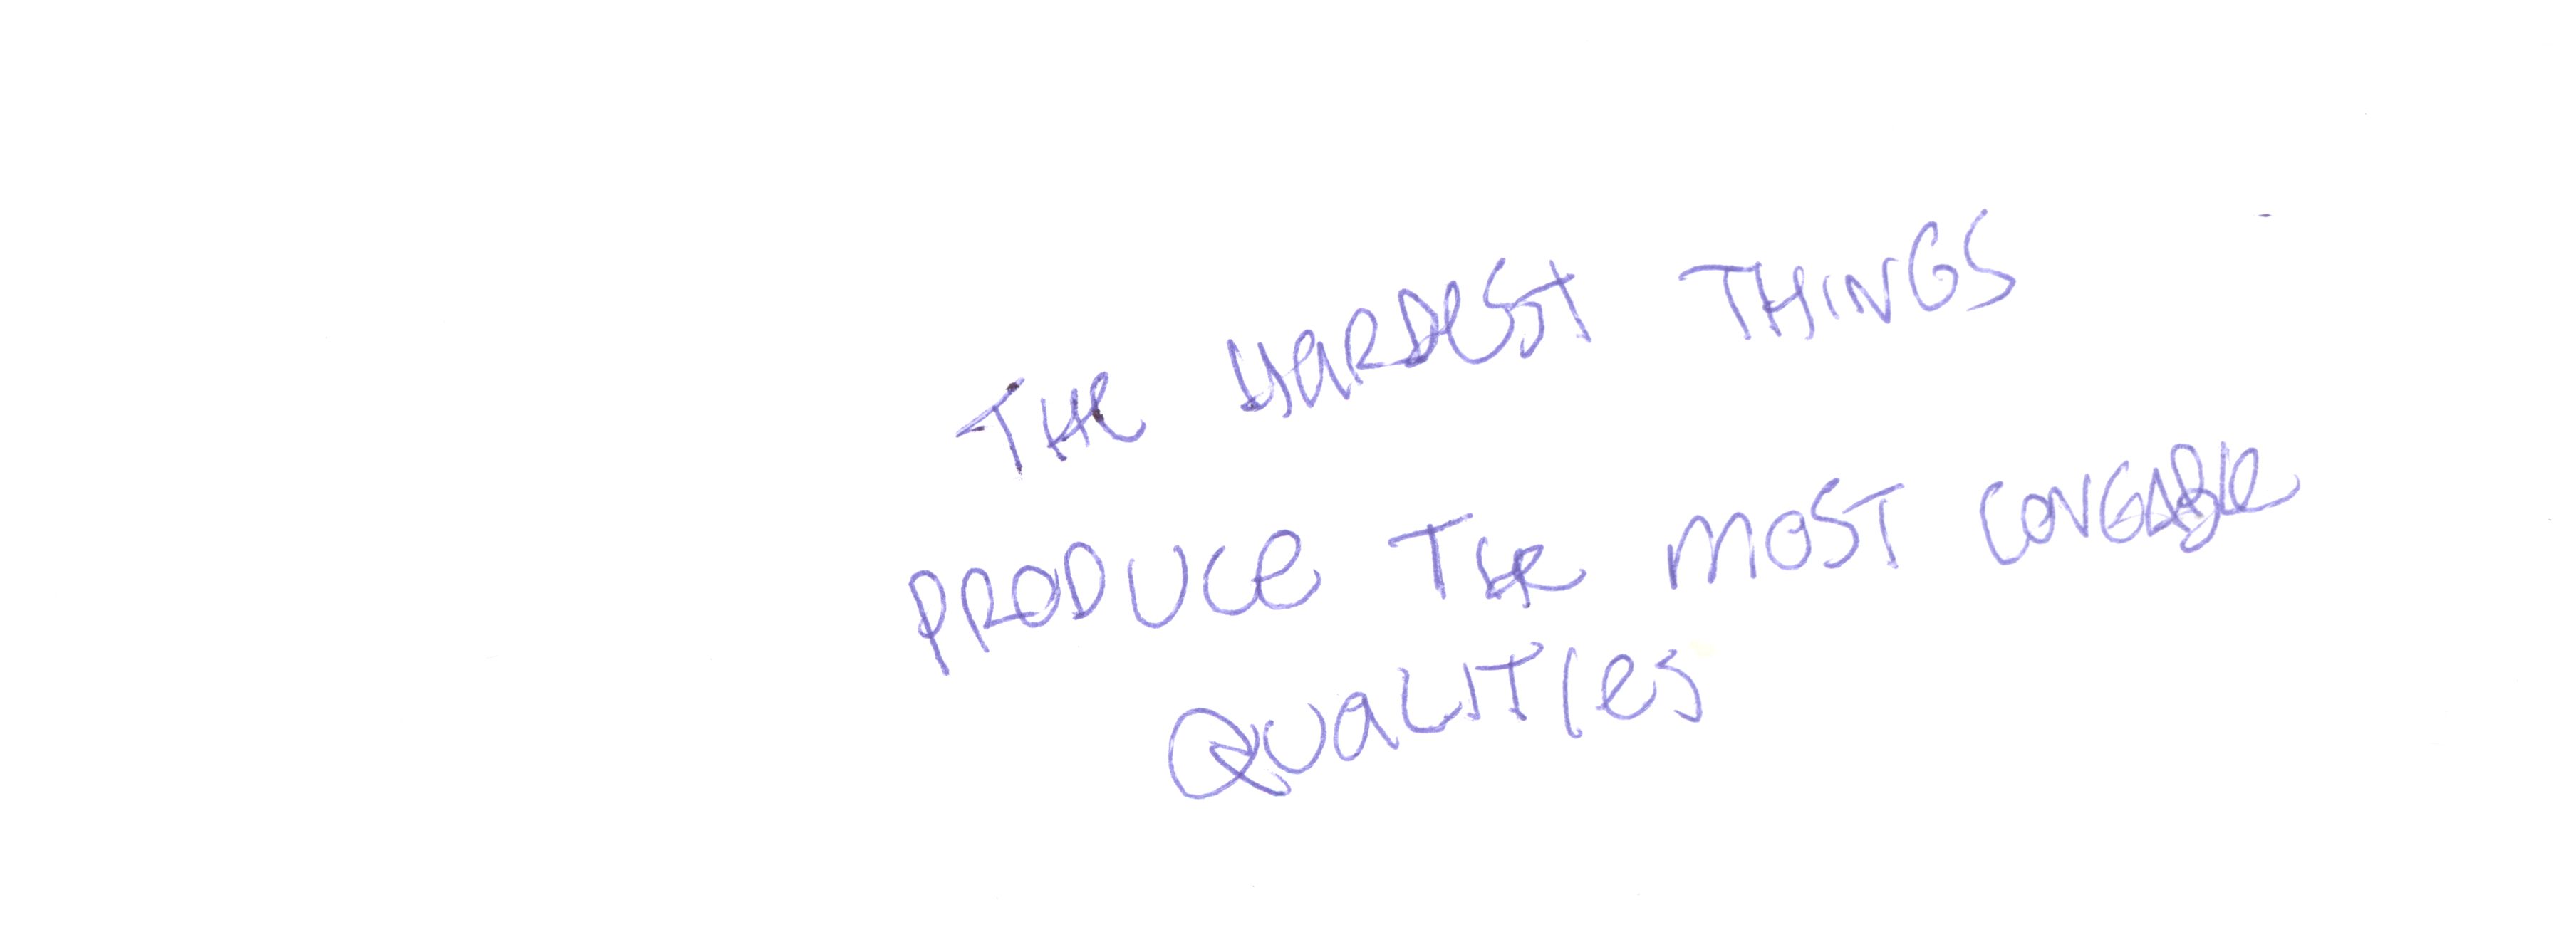 THe HaRDeST THINGS
PRODUCe THe MOST
QUaLITIes